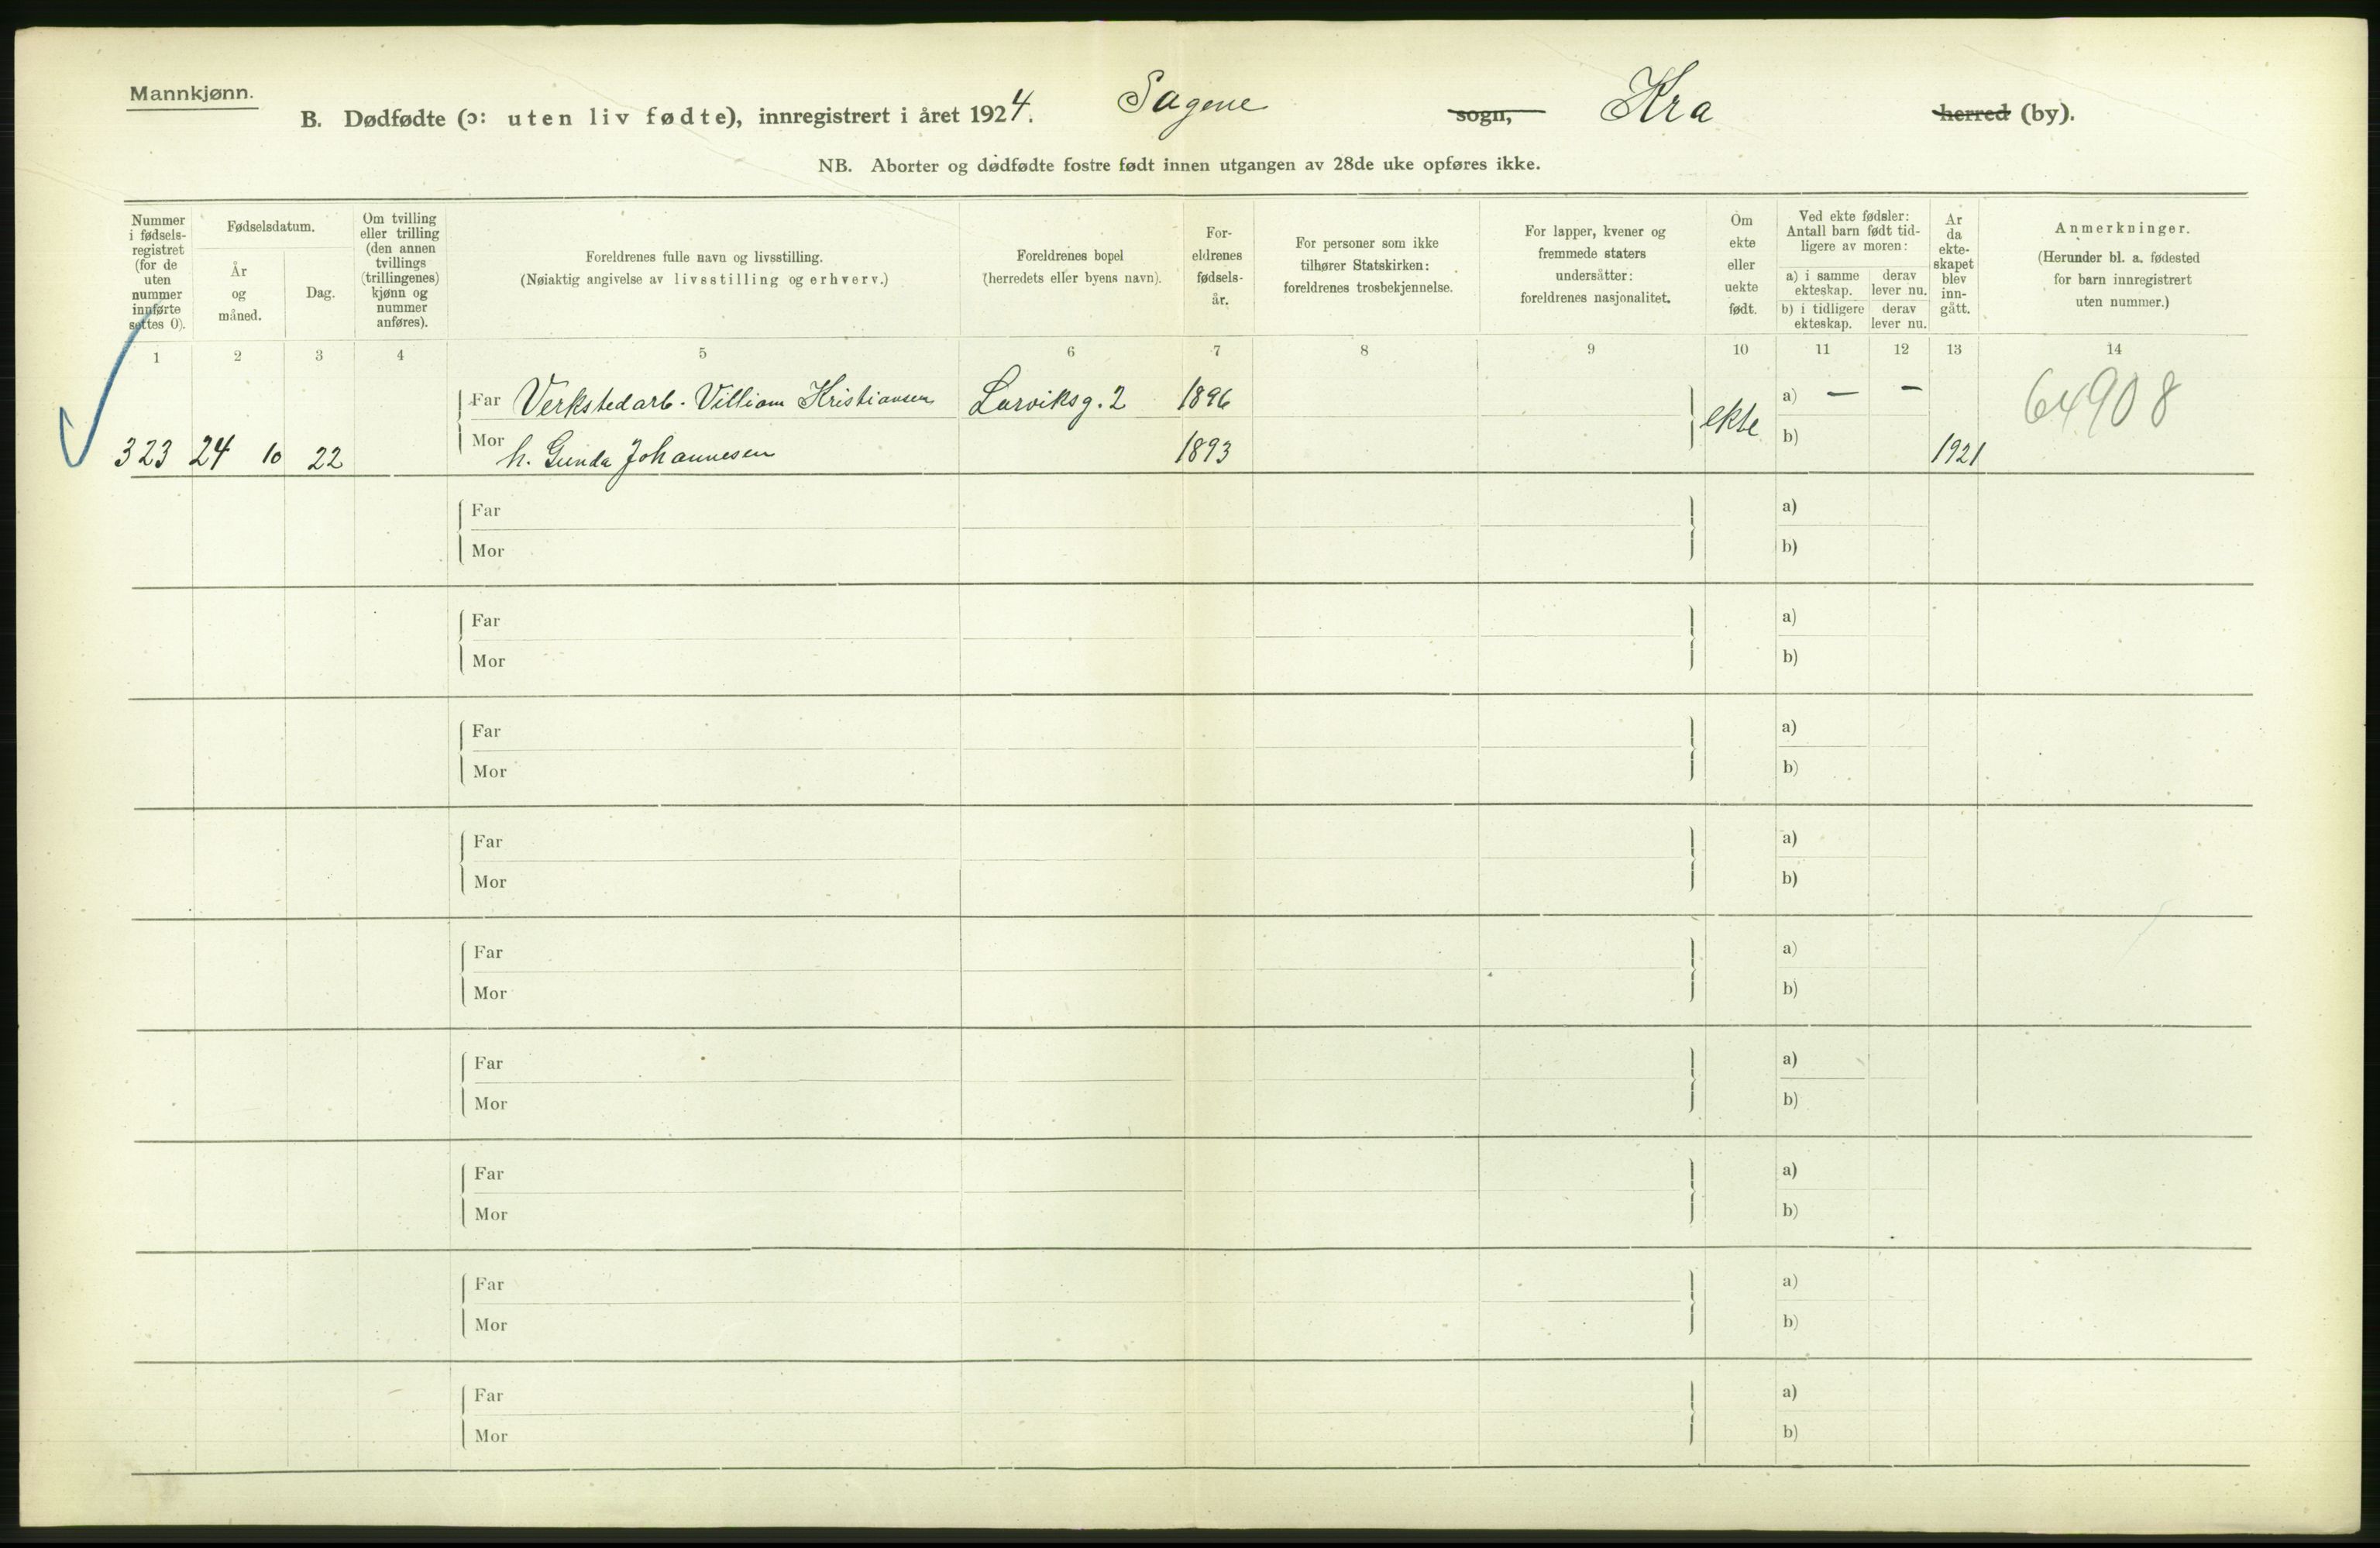 Mannkjønn.
B. Dødfødte (ɔ: uten liv fødte), innregistrert i året 1924. Sagene sogn, Kra herred (by).
NB. Aborter og dødfødte fostre født innen utgangen av 28de uke opføres ikke.
Nummer i fødselsregistret (for de uten nummer innførte settes 0).
Fødselsdatum.
År og måned.
Dag.
Om tvilling eller trilling (den annen tvillings (trillingenes) kjønn og nummer anføres).
Foreldrenes fulle navn og livsstilling.
(Nøiaktig angivelse av livsstilling og erhverv.)
Foreldrenes bopel
(herredets eller byens navn).
Foreldrenes fødselsår.
For personer som ikke tilhører Statskirken: foreldrenes trosbekjennelse.
For lapper, kvener og fremmede staters undersåtter: foreldrenes nasjonalitet.
Om ekte eller uekte født.
Ved ekte fødsler: Antall barn født tidligere av moren:
a) i samme ekteskap. derav lever nu.
b) i tidligere ekteskap. derav lever nu.
År da ekteskapet blev inngått.
Anmerkninger.
(Herunder bl. a. fødested for barn innregistrert uten nummer.)
1 2 3 4 5 6 7 8 9 10 11 12 13 14
Far Verkstedarb. Villiam Kristiansen Larviksg. 2 1896 ekte a) — — 64908
323 24 10 22 Mor h. Gunda Johannesen 1893 b) 1921
Far a)
Mor b)
Far a)
Mor b)
Far a)
Mor b)
Far a)
Mor b)
Far a)
Mor b)
Far a)
Mor b)
Far a)
Mor b)
Far a)
Mor b)
Far a)
Mor b)